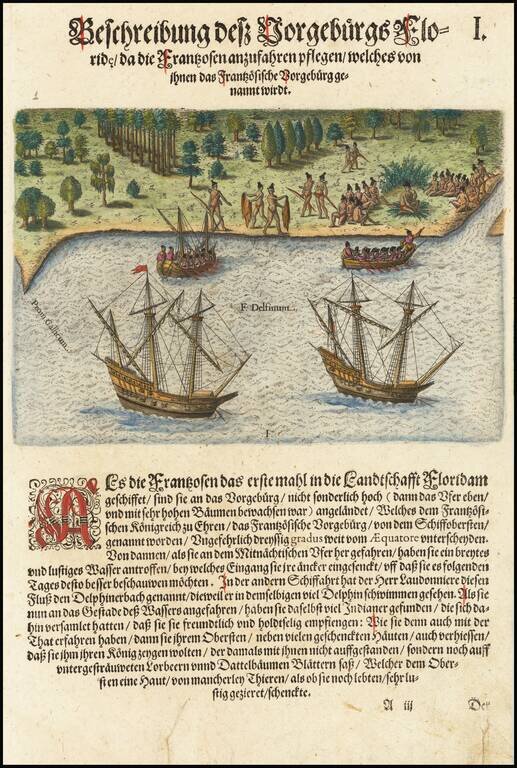 Beschreibung deß Vorgebürgs Flo- I.
ridę / da die Frantzosen anzufahren pflegen / welches von
ihnen das Frantzösische Vorgebürg ge-
nannt wirdt.
1
Prom: Gallicum.
F. Delfinum.
I
Als die Frantzosen das erste mahl in die Landtschafft Floridam
geschiffet / sind sie an das Vorgebürg / nicht sonderlich hoch (dann das Ufer eben /
vnd mit sehr hohen Bäumen bewachsen war) angeländet / Welches dem Frantzösi-
schen Königreich zu Ehren / das Frantzösische Vorgebürg / von dem Schiffobersten /
genannt worden / Ungefehrlich dreyssig gradus weit vom Æquatore vnterscheyden.
Von dannen / als sie an dem Mitnächtischen Ufer her gefahren / haben sie ein breytes
vnd lustiges Wasser antroffen / bey welches Eingang sie jre äncker eingesenckt / vff daß sie es folgenden
Tages desto besser beschauwen möchten. In der andern Schiffahrt hat der Herr Laudonniere diesen
Fluß den Delphinerbach genannt / dieweil er in demselbigen viel Delphin schwimmen gesehen. Als sie
nun an das Gestade deß Wassers angefahren / haben sie daselbst viel Indianer gefunden / die sich da-
hin versamlet hatten / daß sie sie freundtlich vnd holdtselig empfiengen: Wie sie denn auch mit der
That erfahren haben / dann sie ihrem Obersten / neben vielen geschenckten Häuten / auch verhiessen /
daß sie ihm ihren König zeygen wolten / der damals mit ihnen nicht auffgestanden / sondern noch auff
vntergesträuweten Lorbeern vnnd Dattelbäumen Blättern saß / Welcher dem Ober-
sten eine Haut / von mancherley Thieren / als ob sie noch lebten / sehr lu-
stig gezieret / schenckte.
A iij Der